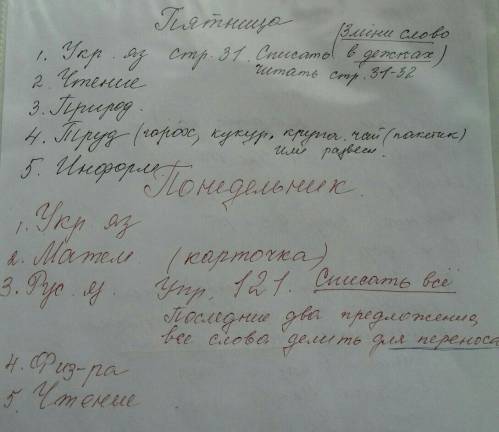 Пятница
1. Укр. яз стр. 31. Списать (Зміни слово в дежках)
читать стр. 31-32
2. Чтение
3. Природ.
4. Труд (горох, кукур, крупа. чай (пакетик)
или развесн.
5. Информ
Понедельник.
1. Укр яз
2. Матем (карточка)
3. Рус. яз. Упр. 121. Списать всё
Последние два предложения,
все слова делить для переноса
4. Физ-ра
5. Чтение